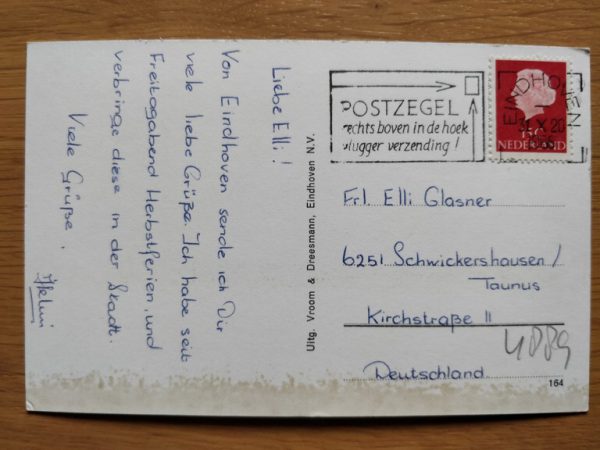 Liebe Elli!
Von Eindhoven sende ich Dir
viele liebe Grüße. Ich habe seit
Freitagabend Herbstferien, und
verbringe diese in der Stadt.
Viele Grüße,
Uitg. Vroom & Dreesmann, Eindhoven N.V.
POSTZEGEL
rechts boven in de hoek
vlugger verzending!
EINDHOVEN
NEDERLAND
Frl. Elli Glasner
6251 Schwickershausen/
Taunus
Kirchstraße 11
4889
Deutschland
164